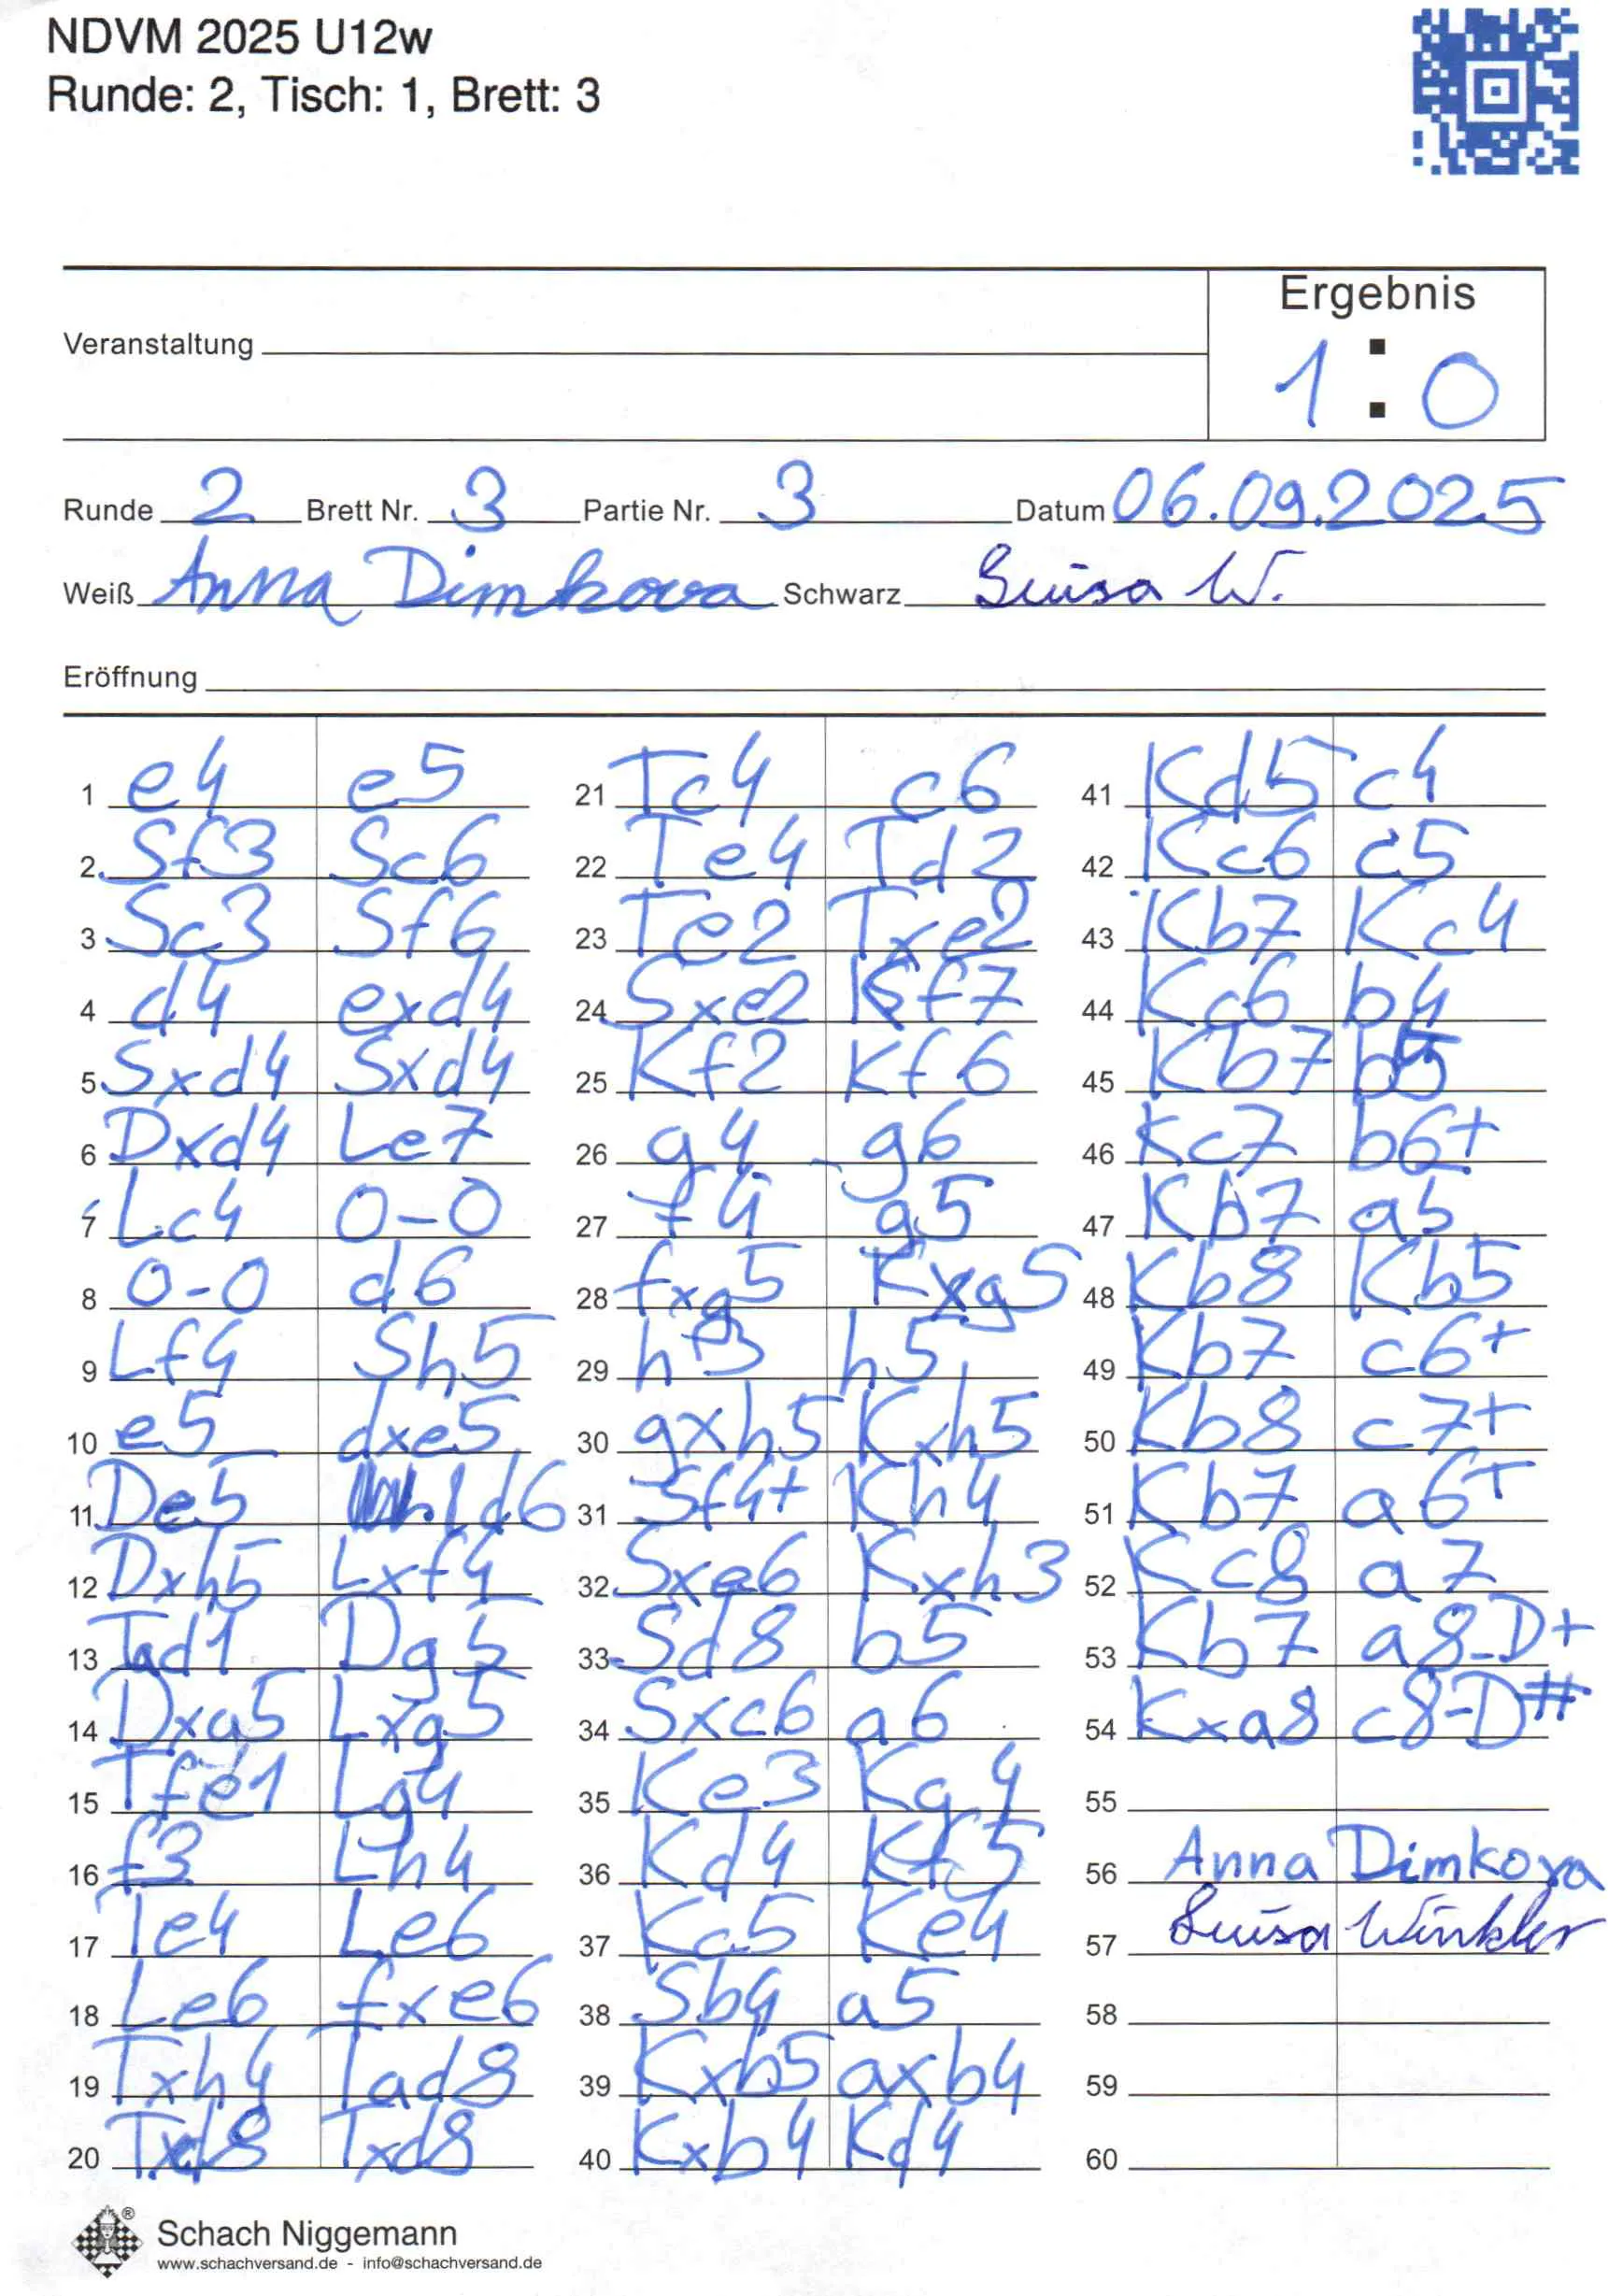 NDVM 2025 U12w
Runde: 2, Tisch: 1, Brett: 3
Ergebnis
Veranstaltung
1 : 0
Runde 2 Brett Nr. 3 Partie Nr. 3 Datum 06.09.2025
Weiß Anna Dimkova Schwarz Luisa W.
Eröffnung
1 e4 e5
2 Sf3 Sc6
3 Sc3 Sf6
4 d4 exd4
5 Sxd4 Sxd4
6 Dxd4 Le7
7 Lc4 0-0
8 0-0 d6
9 Lf4 Sh5
10 e5 dxe5
11 De5 Ld6
12 Dxh5 Lxf4
13 Tad1 Dg5
14 Dxg5 Lxg5
15 Tfe1 Lg4
16 f3 Lh4
17 Te4 Le6
18 Le6 fxe6
19 Txh4 Tad8
20 Txd8 Txd8
21 Tc4 c6
22 Te4 Td2
23 Te2 Txe2
24 Sxe2 Kf7
25 Kf2 Kf6
26 g4 g6
27 f4 g5
28 fxg5 Kxg5
29 h3 h5
30 gxh5 Kxh5
31 Sf4+ Kh4
32 Sxe6 Kxh3
33 Sd8 b5
34 Sxc6 a6
35 Ke3 Kg4
36 Kd4 Kf5
37 Kc5 Ke4
38 Sb4 a5
39 Kxb5 axb4
40 Kxb4 Kd4
41 Kd5 c4
42 Kc6 c5
43 Kb7 Kc4
44 Kc6 b4
45 Kb7 b5
46 Kc7 b6+
47 Kb7 a5
48 Kb8 Kb5
49 Kb7 c6+
50 Kb8 c7+
51 Kb7 a6+
52 Kc8 a7
53 Kb7 a8-D+
54 Kxa8 c8-D#
55
56 Anna Dimkova
57 Luisa Winkler
58
59
60
Schach Niggemann
www.schachversand.de - info@schachversand.de